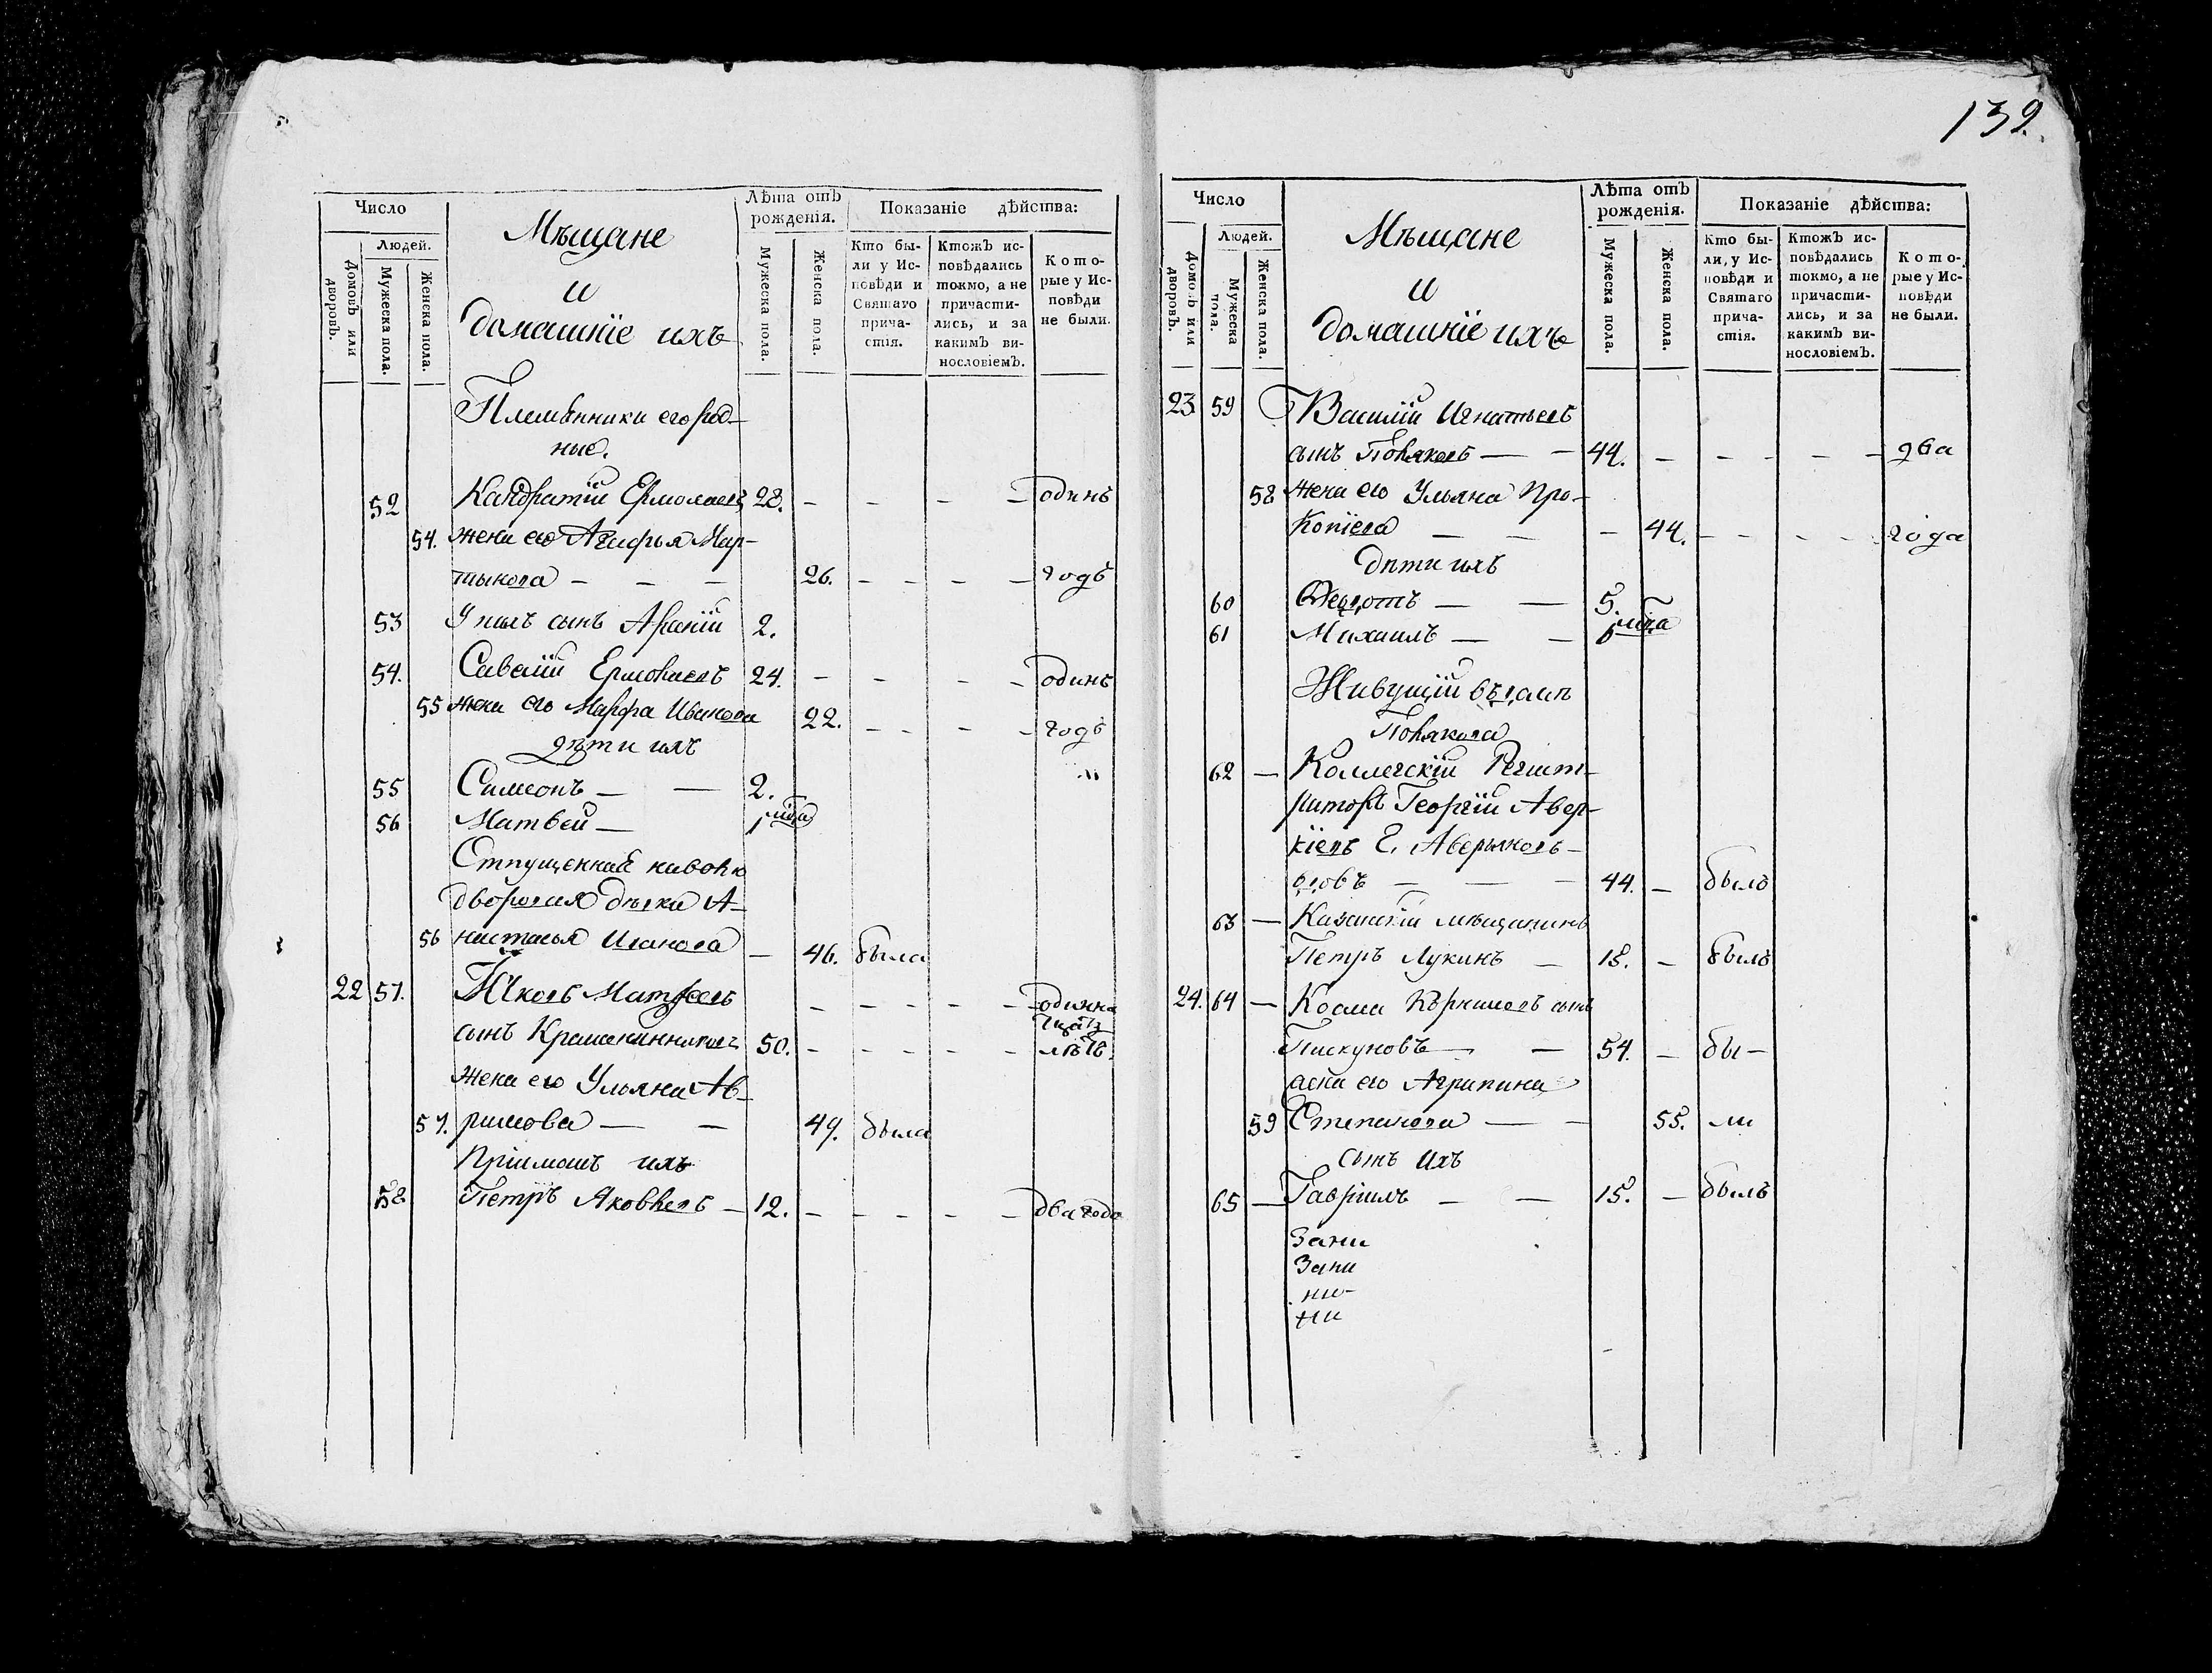 132.
Число
Людей.
Домовъ или дворовъ.
Мужеска пола.
Женска пола.
Мѣщане
и
домашніе ихъ
Лѣта отъ рожденія.
Мужеска пола.
Женска пола.
Показаніе дѣйства:
Кто бы-
ли у Ис-
повѣди и
Святаго
прича-
стія.
Ктожъ ис-
повѣдались
токмо, а не
причасти-
лись, и за
какимъ ви-
нословіемъ.
Кото-
рые у Ис-
повѣди
не были.
Племянники его род-
ные.
52 Кандратій Ермолаевъ 28. - - - - одинъ
54. жена его Агафья Мар-
тынова - - - 26. - - - - годъ
53 У нихъ сынъ 2.
54. Савелій Ермолаевъ 24. - - - - одинъ
55 жена его Марфа Иванова 22. - - - - годъ
дѣти ихъ
55 Симеонъ - — 2.
56 Матвей — 1
Отпущенная на волю
дворовая дѣвка А-
56 настасья Иванова — 46. была
22 57. Яковъ Матфеевъ - - - - - одинна
дцать
сынъ Крашенинниковъ 50. - - - - - лѣтъ.
жена его Ульяна Аб-
57. рамова — — 49. была
Пріимышъ ихъ
58 Петръ Яковлевъ — 12. - - - - - два года
Число
Людей.
Домовъ или дворовъ.
Мужеска пола.
Женска пола.
Мѣщане
и
домашніе ихъ
Лѣта отъ рожденія.
Мужеска пола.
Женска пола.
Показаніе дѣйства:
Кто бы-
ли, у Ис-
повѣди и
Святаго
прича-
стія.
Ктожъ ис-
повѣдались
токмо, а не
причасти-
лись, и за
какимъ ви-
нословіемъ.
Кото-
рые у Ис-
повѣди
не были.
23 59 Василій Игнатьевъ
сынъ Поляковъ — — 44. - - - - - два
58 жена его Ульяна Про-
копіева — — — 44. - - - - года
дѣти ихъ
60 Федотъ — — 5.
61 Михаилъ — —
Живущій въ домѣ
Полякова
62 — Коллегскій Регист-
раторъ Георгій Авер-
кіевъ
— — — 44. — былъ
63 — Казанскій мѣщанинъ
Петръ Лукинъ — 18. — былъ
24. 64 — Косма сынъ
Пискуновъ — — 54. — бы-
жена его Агрипина
59 Степанова — — 55. ли
сынъ ихъ
65 — Гавріилъ — — 15. — былъ